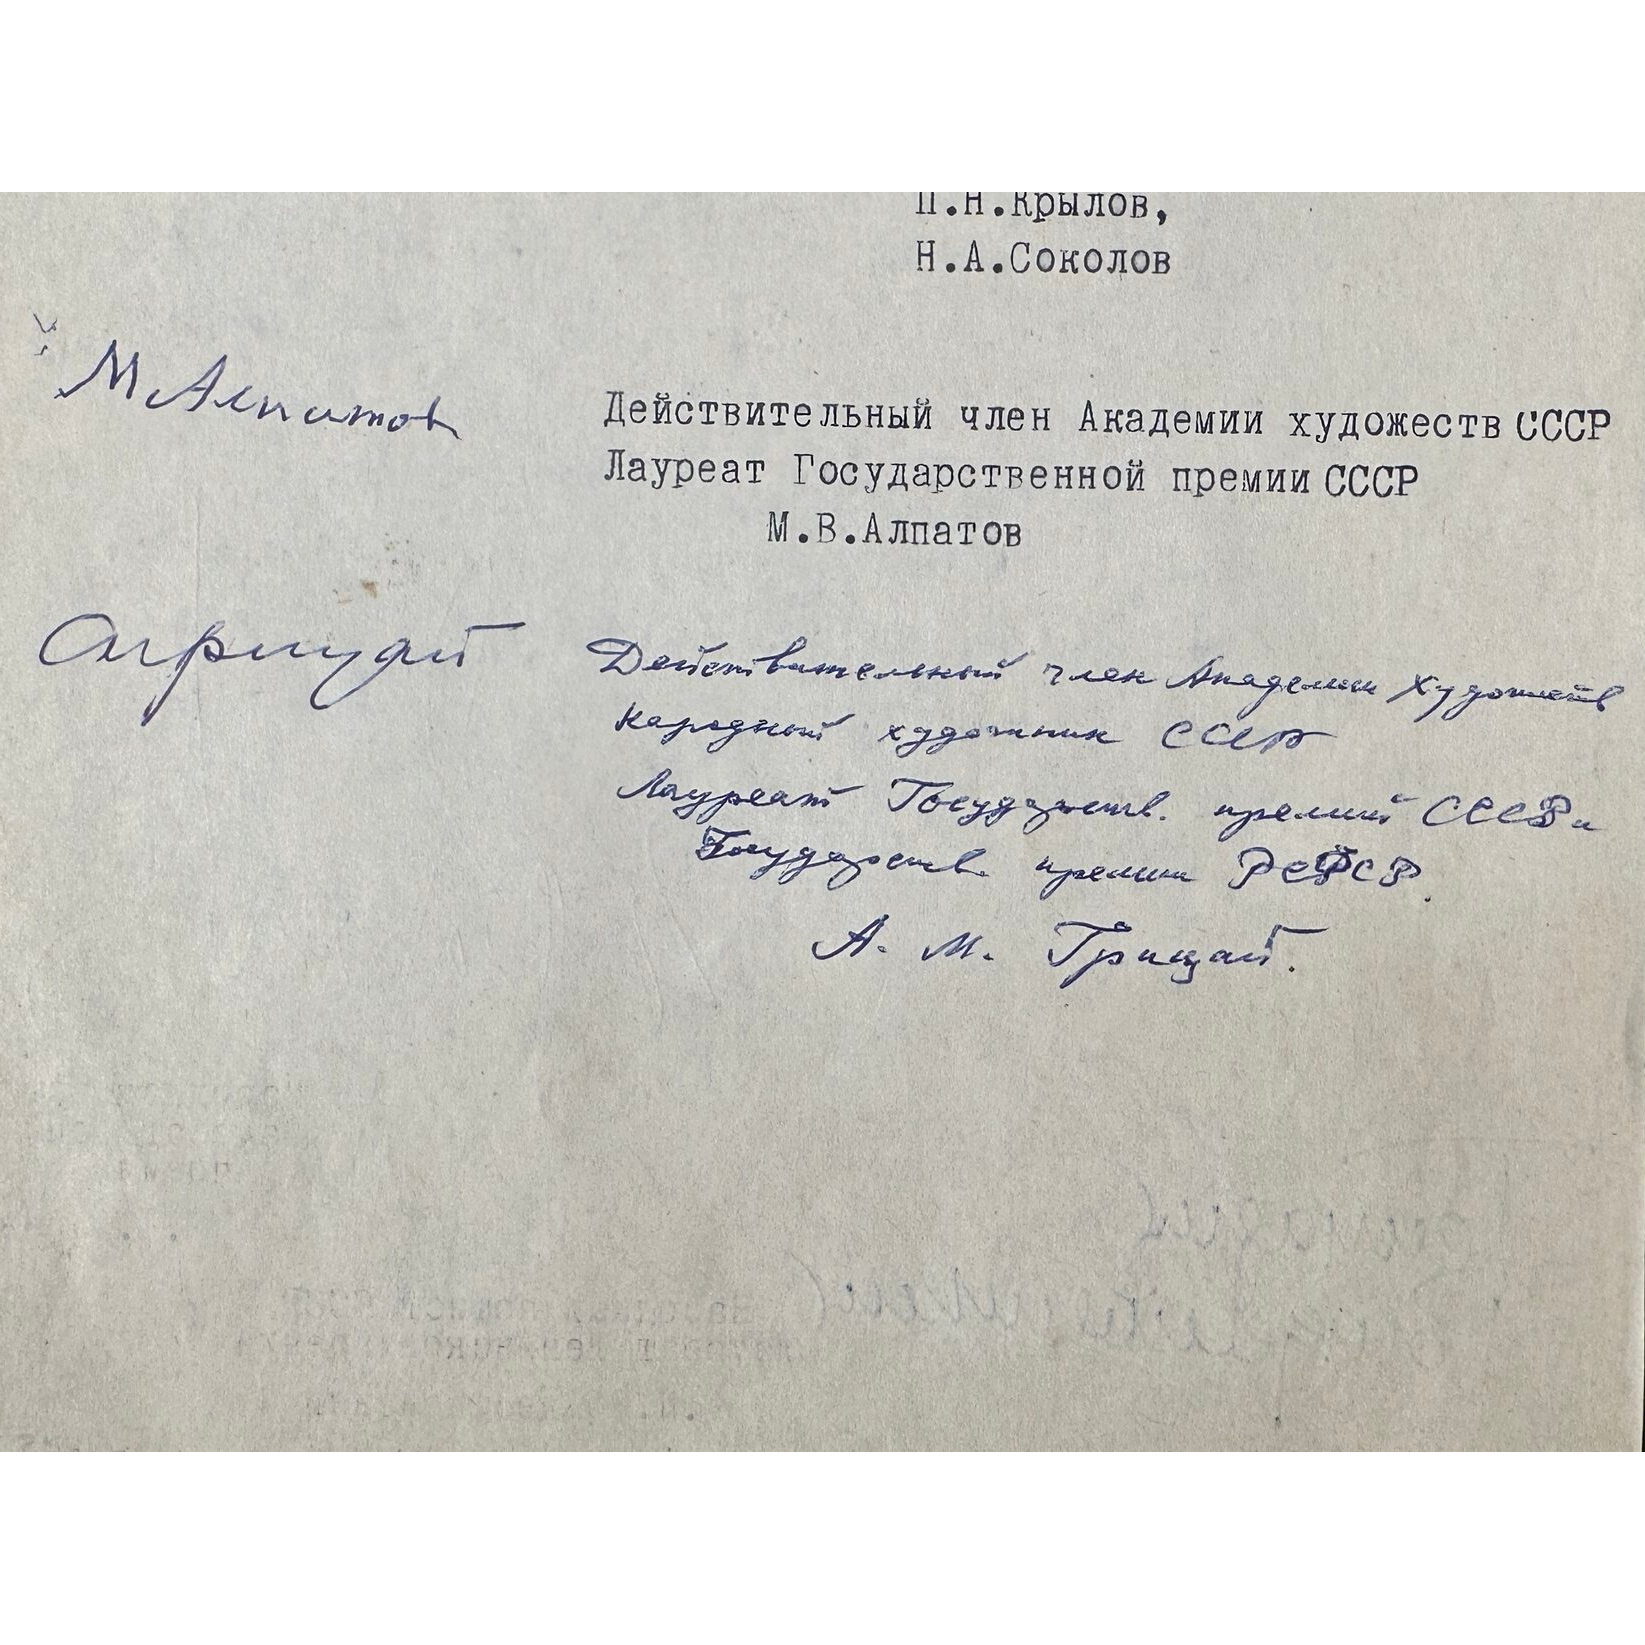 П.Н.Крылов,
Н.А.Соколов
М Алпатов
Действительный член Академии художеств СССР
Лауреат Государственной премии СССР
М.В.Алпатов
АГрицай
Действительный член Академии Художеств
народный художник СССР
Лауреат Государств. премий СССР и
Государств. премии РСФСР.
А. М. Грицай.